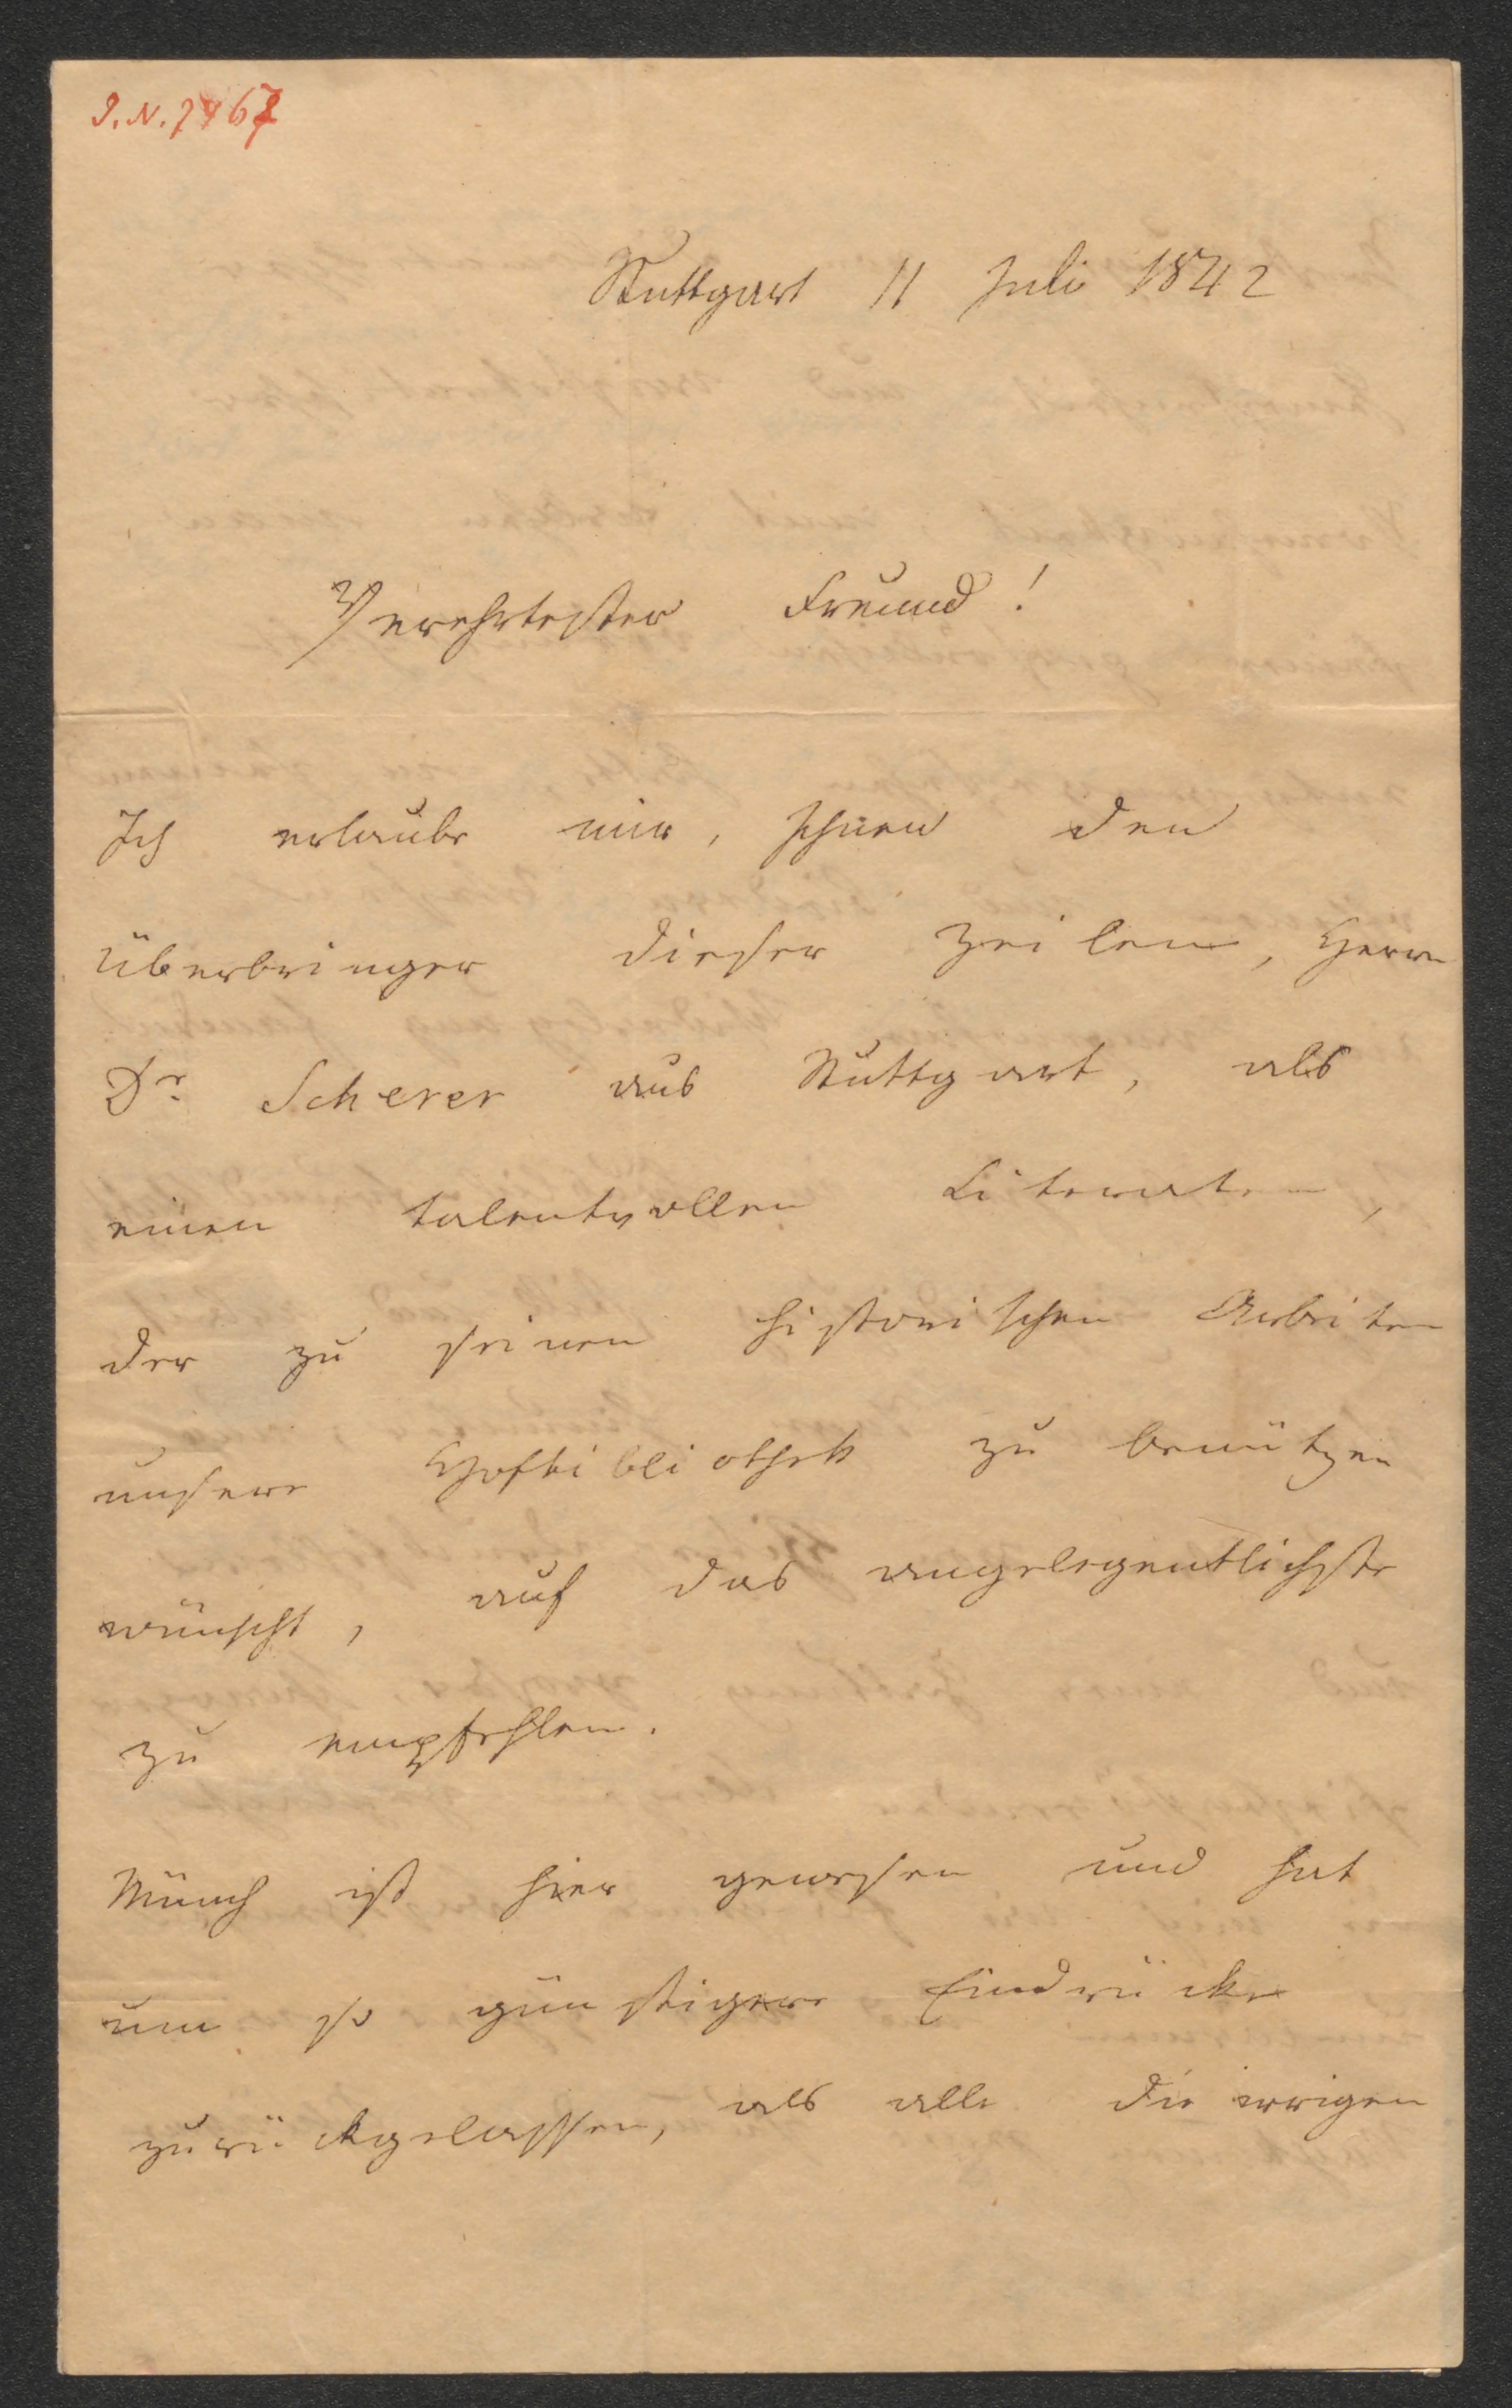 I.N. 7467
Stuttgart 11 Juli 1842
Verehrtester Freund!
Ich erlaube mir, Ihnen den
Überbringer dieser Zeilen, Herrn
Dr Scherer aus Stuttgart, als
einen talentvollen Literaten,
der zu seinen historischen Arbeiten
unsere Hofbibliothek zu benützen
wünscht, auf das angelegentlichste
zu empfehlen.
Münch ist hier gewesen und hat
um so günstigere Eindrücke
zurückgelassen, als alle die irrigen